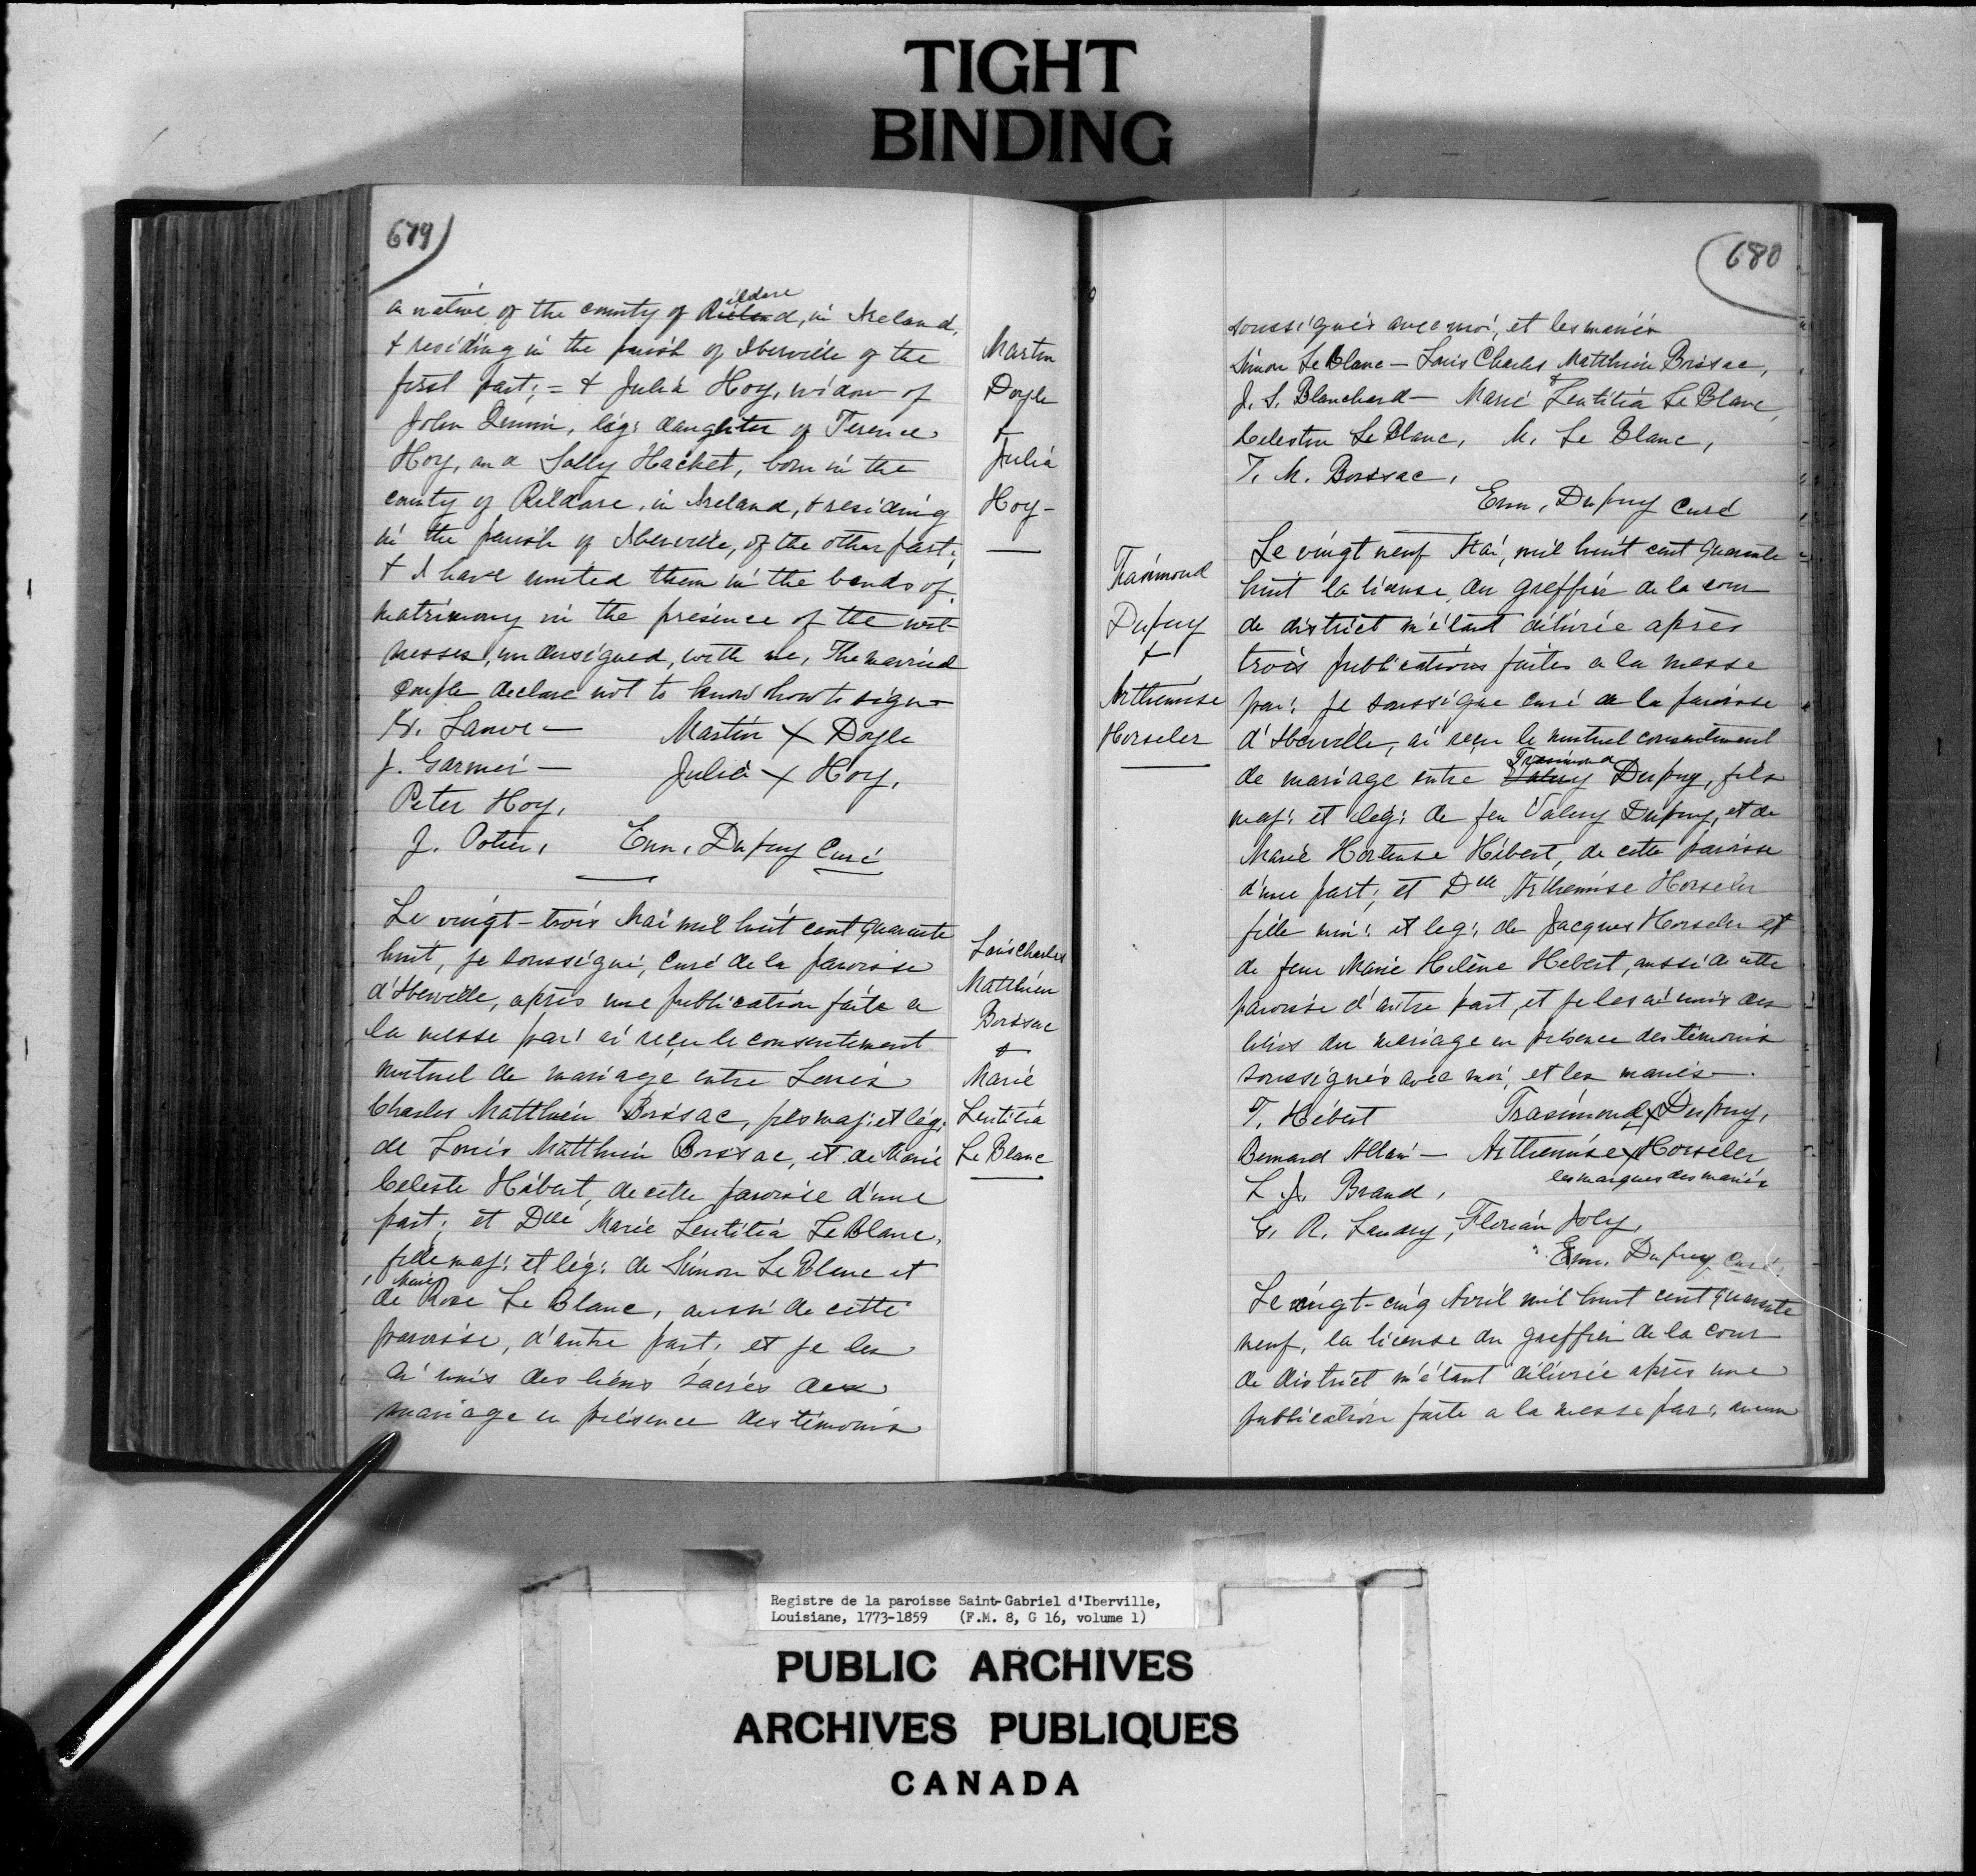 TIGHT
BINDING
679
a native of the county of Kildare, in Ireland,
& residing in the parish of Iberville of the
first part; = & Julia Hoy, widow of
John , leg: daughter of Terence
Hoy, and Sally Hacket, born in the
county of Kildare, in Ireland, & residing
in the parish of Iberville, of the other part;
& I have united them in the bonds of
matrimony in the presence of the wit-
nesses, undersigned, with me, The married
couple declare not to know how to sign
Martin X Doyle
J. Garnier — Julia X Hoy,
Peter Hoy,
J. Potier, Enn. Dupuy Curé
Martin
Doyle
&
Julia
Hoy —
Le vingt-trois Mai mil huit cent quarante
huit, je soussigné, curé de la paroisse
d'Iberville, après une publication faite a
la messe par: ai reçu le consentement
mutuel de mariage entre Louis
Charles Matthieu Boissac, fils maj: et lég:
de Louis Matthieu Boissac, et de Marie
Celeste Hébert, de cette paroisse d'une
part; et Dlle Marie Lentitia Le Blanc,
fille maj: et leg: de Simon Le Blanc et
de Marie Rose Le Blanc, aussi de cette
paroisse, d'autre part, et je les
ai unis des liens sacrés du
mariage en présence des témoins
Louis Charles
Matthieu
Boissac
&
Marie
Lentitia
Le Blanc
680
soussignés avec moi, et les mariés
Simon Le Blanc — Louis Charles Matthieu Boissac,
J. S. Blanchard — Marie Lentitia Le Blanc,
Celestin Le Blanc, M. Le Blanc,
T. M. Boissac,
Enn, Dupuy Curé
Trasimond
Dupuy
&
Arthemise
Horseler
Le vingt neuf Mai, mil huit cent quarante
huit la license du greffier de la cour
de district m'étant délivrée après
trois publications faites a la messe
par: je soussigné curé de la paroisse
d'Iberville, ai reçu le mutuel consentement
de mariage entre Valery Trasimond Dupuy, fils
maj: et leg: de feu Valery Dupuy, et de
Marie Hortense Hébert, de cette paroisse
d'une part; et Dlle Arthemise Horseler
fille min: et leg: de Jacques Horseler et
de feue Marie Helène Hebert, aussi de cette
paroisse d'autre part, et je les ai unis des
liens du mariage en présence des témoins
soussignés avec moi, et les mariés.
T. Hébert Trasimond X Dupuy,
Bernard Allain — Arthemise X Horseler
les marques des mariés
L. J. Braud,
G. R. Landry, Florian Joly,
Enn. Dupuy Curé
Le vingt-cinq Avril mil huit cent quarante
neuf, la license du greffier de la cour
de district m'étant délivrée après une
publication faite a la messe par: aucun
Registre de la paroisse Saint-Gabriel d'Iberville,
Louisiane, 1773-1859 (F.M. 8, G 16, volume 1)
PUBLIC ARCHIVES
ARCHIVES PUBLIQUES
CANADA